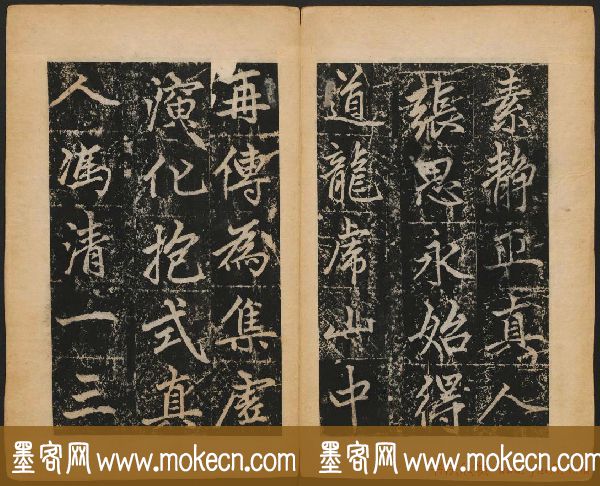 素靜正真人
張思永始得
道龍虎山中
再傳為集虛
演化抱式真
人馮清一三
墨客网 www.mokecn.com
墨客网 www.mokecn.com